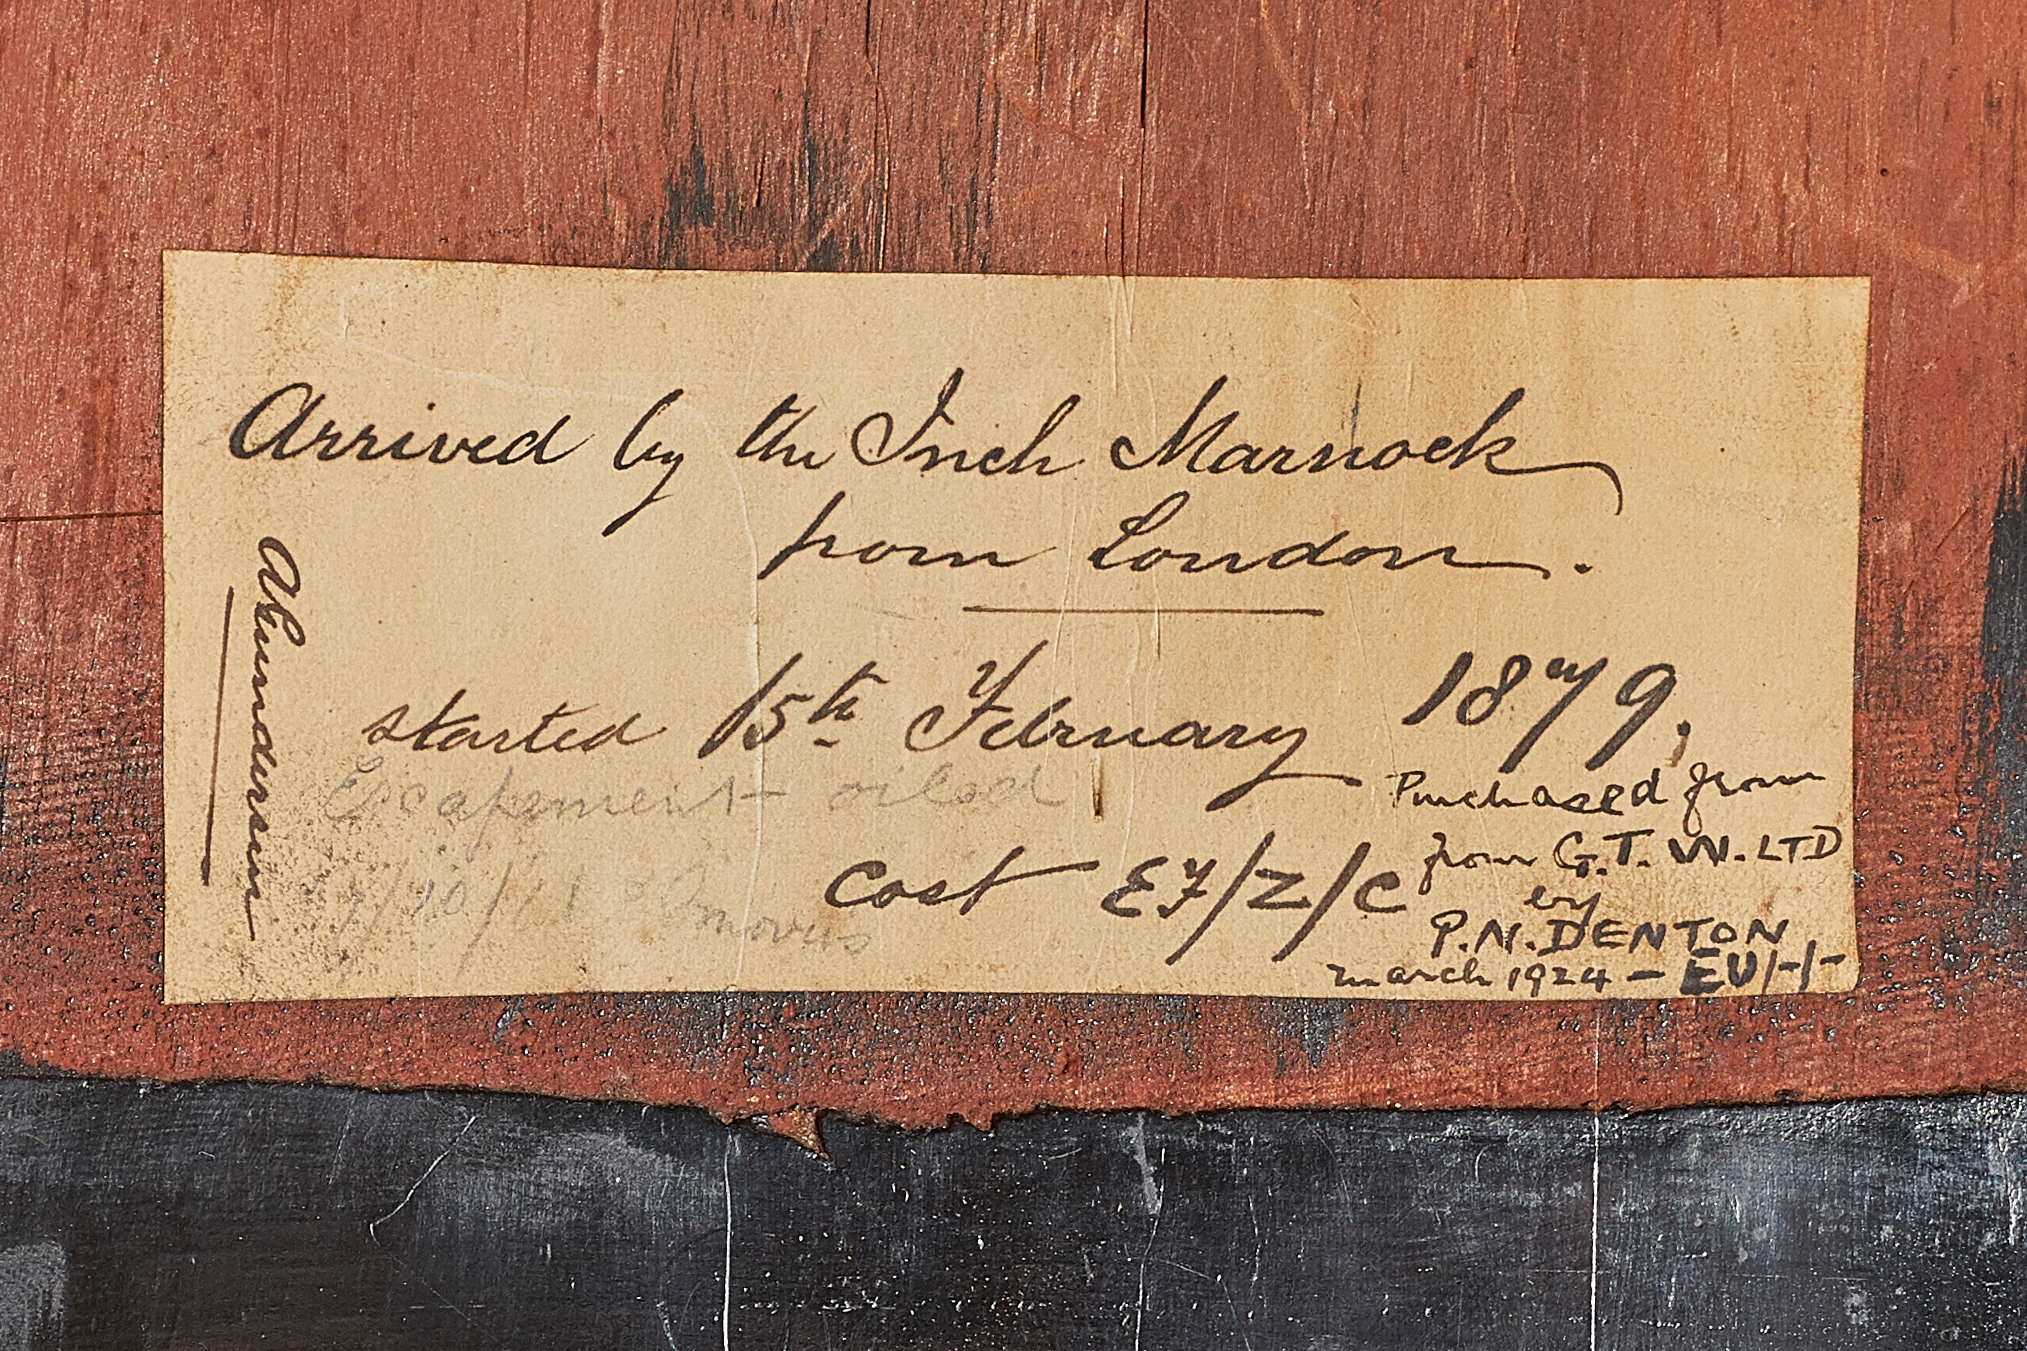 Arrived by the Inch Marnock
from London.
started 15th February 1879.
Escapement oiled
cost EF/Z/C
Purchased from
from G.T.W. LTD
by
P.N. DENTON
March 1924 - EU/-/-